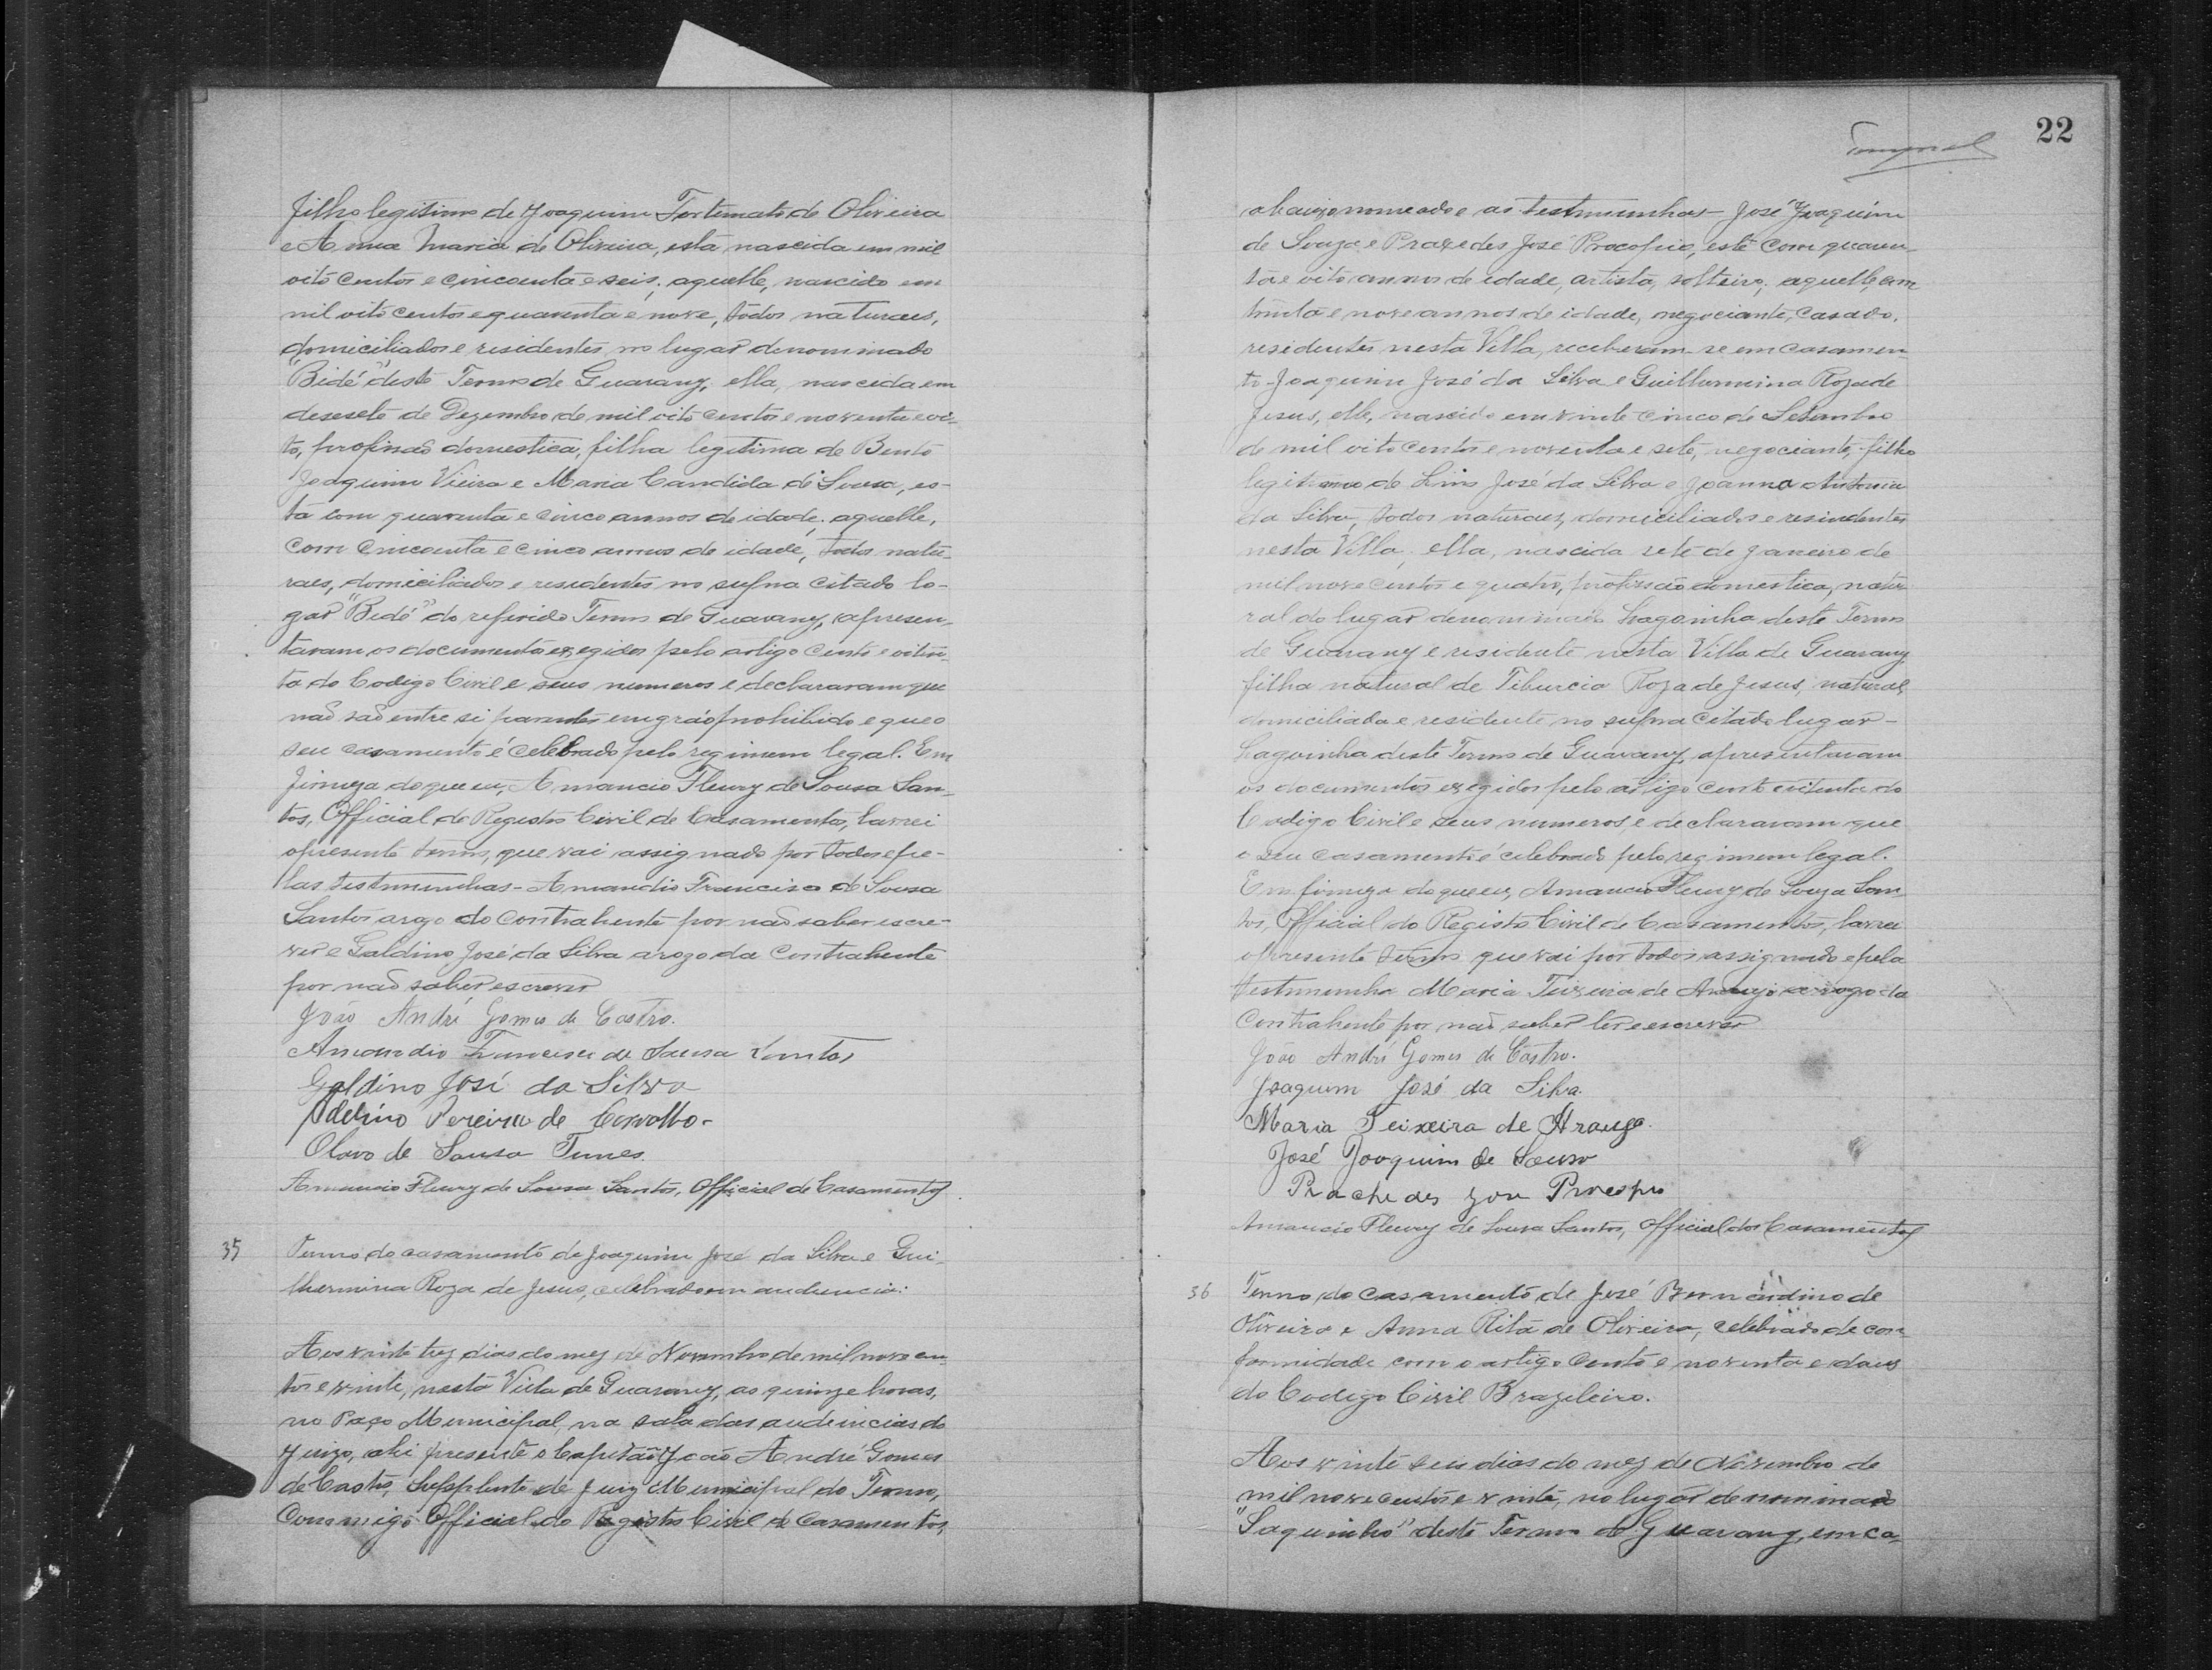 filho legitimo de Joaquim Fortunato de Oliveira
e Anna Maria de Oliveira, esta, nascida em mil
oito centos e cincoenta e seis; aquelle, nascido em
mil oito centos e quarenta e nove, todos naturaes,
domiciliados e residentes no lugar denominado
"Bidé" deste Termo de Guarany, ella, nascida em
desesete de Dezembro de mil oito centos e noventa e oi-
to, profissão domestica, filha legitima de Bento
Joaquim Vieira e Maria Candida de Sousa, es-
ta com quarenta e cinco annos de idade; aquelle,
com cincoenta e cinco annos de idade, todos natu-
raes, domiciliados e residentes no supra citado lo-
gar "Bidé" do referido Termo de Guarany, apresen-
taram os documentos exegidos pelo artigo cento e oiten-
ta do Codigo Civil e seus numeros e declararam que
não são entre si parentes em gráo prohibido e que o
seu casamento é celebrado pelo regimem legal. Em
firmeza do que eu, Amancio Fleury de Sousa San-
tos, Official do Registro Civil de Casamentos, lavrei
o presente termo, que vai assignado por todos e pe-
las testemunhas - Amandio Francisco de Sousa
Santos a rogo do contrahente por não saber escre-
ver e Galdino José da Silva a rogo da contrahente
por não saber escrever
João André Gomes de Castro.
Amandio Francisco de Sousa Santos
Galdino José da Silva
Adelino Pereira de Carvalho.
Olavo de Sousa Tunes.
Amancio Fleury de Sousa Santos, Official de Casamentos
35 Termo do casamento de Joaquim José da Silva e Gui-
lhermina Roza de Jesus, celebrado em audiencia:
Aos vinte trez dias do mez de Novembro de mil nove cen-
tos e vinte, nesta Villa de Guarany, as quinze horas,
no Paço Municipal, na sala das audiencias do
Juizo, ahi presente o Capitão João André Gomes
de Castro, Supplente de Juiz Municipal do Termo,
Commigo Official do Registro Civil de Casamentos,
22
abaixo nomeado e as testemunhas - José Joaquim
de Souza e Praxedes José Procopio, este com quaren-
ta e oito annos de idade, artista, solteiro; aquelle, com
trinta e nove annos de idade, negociante, casado,
residentes nesta Villa, receberam-se em casamen
to - Joaquim José da Silva e Guilhermina Roza de
Jesus, elle, nascido em vinte cinco de Setembro
de mil oito centos e noventa e sete, negociante, filho
legitimo de Lino José da Silva e Joanna Antonia
da Silva, todos naturaes, domiciliados e resindentes
nesta Villa; ella, nascida sete de Janeiro de
mil nove centos e quatro, profissão domestica, natu
ral do lugar denominado Lagoinha deste Termo
de Guarany e residente nesta Villa de Guarany
filha natural de Tiburcia Roza de Jesus, natural,
domiciliada e residente no supra citado lugar -
Lagoinha deste Termo de Guarany, apresentaram
os documentos exegidos pelo artigo cento e oitenta do
Codigo Civil e seus numeros, e declararam que
o seu casamento é celebrado pelo regimem legal.
Em firmeza do que eu, Amancio Fleury de Souza San-
tos, Official do Registro Civil de Casamentos, lavrei
o presente termo que vai por todos assignado e pela
testemunha Maria Teixeira de Araujo a rogo da
contrahente por não saber ler e escrever
João André Gomes de Castro.
Joaquim José da Silva.
Maria Teixeira de Araujo.
José Joaquim de Souza
Prachedes José Procopio
Amancio Fleury de Sousa Santos, Official dos Casamentos
36 Termo do casamento de José Bernardino de
Oliveira e Anna Rita de Oliveira, celebrado de con-
formidade com o artigo cento e noventa e dous
do Codigo Civil Brazileiro.
Aos vinte seis dias do mez de Novembro de
mil nove centos e vinte, no lugar denominado
"Saquinho" deste Termo de Guarany, em ca-